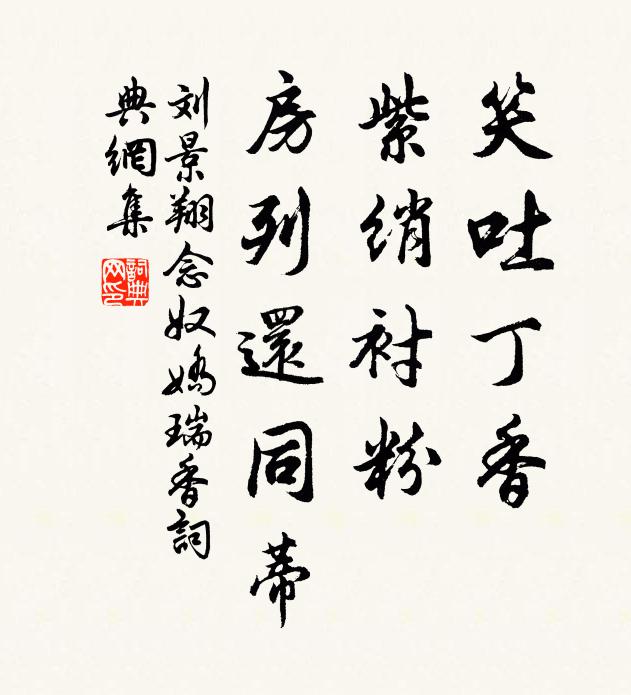 笑吐丁香
紫绡衬粉
房列還同蒂
刘景翔念奴嬌瑞香詞
典網集
詞典网印